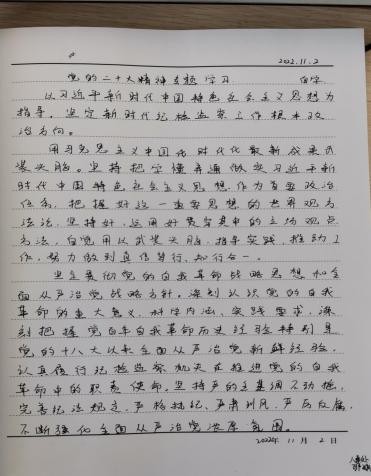 2022.11.2
党的二十大精神专题学习 自学
以习近平新时代中国特色社会主义思想为
指导，坚定新时代纪检监察工作根本政
治方向。
用马克思主义中国化时代化最新成果武
装头脑。坚持把学懂弄通做实习近平新
时代中国特色社会主义思想，作为首要政治
任务，把握好这一重要思想的世界观方
法论，坚持好、运用好贯穿其中的立场观点
方法，自觉用以武装头脑、指导实践、推动工
作，努力做到真信笃行、知行合一。
坚定贯彻党的自我革命战略思想和全
面从严治党战略方针。深刻认识党的自我
革命的重大意义、科学内涵、实践要求，深
刻把握党百年自我革命历史经验特别是
党的十八大以来全面从严治党新鲜经验，
认真履行纪检监察机关在推进党的自我
革命中的职责使命，坚持严的主基调不动摇，
完善纪法规定、严格执纪、严肃纠风、严厉反腐，
不断强化全面从严治党浓厚氛围。
2022年11月2日